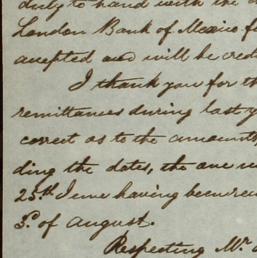 duly to hand with the
London Bank of Mexico f
accepted and will be cred
I thank you for th
remittances during last y
correct as to the amounts
ding the dates, the one
25th June having been re
3d. of August.
Respecting Mr.